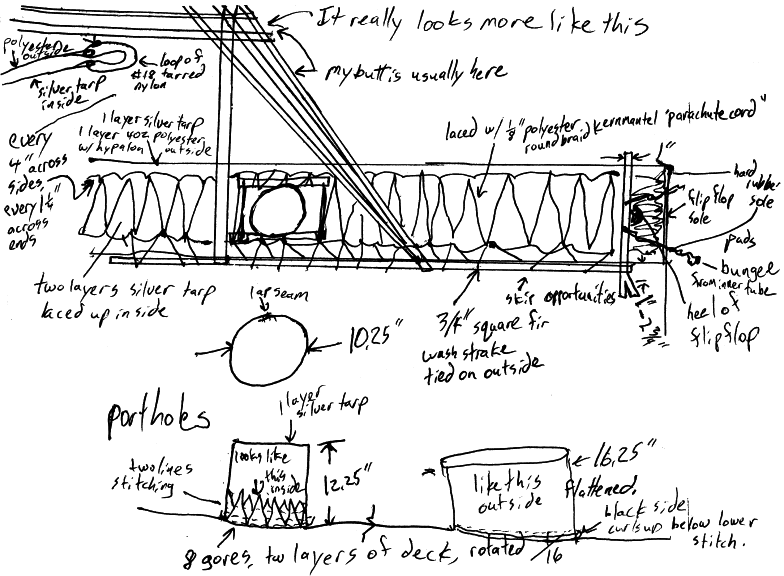 It really looks more like this
my butt is usually here
polyester
outside
silver tarp
inside
loop of
#18 tarred
nylon
every
4" across
sides,
every 1 1/4"
across
ends
1 layer silver tarp
1 layer 4oz polyester
w/ hypalon outside
laced w/ 1/8" polyester
round braid kernmantel "parachute cord"
1"
hard
rubber
sole
flip flop
sole
pads
bungee
from inner tube
heel of
flip flop
two layers silver tarp
laced up inside
lap seam
10.25"
3/4" square fir
wash strake
tied on outside
skip opportunities
portholes
1 layer
silver tarp
two lines
stitching
looks like
this
inside
12.25"
like this
outside
16.25"
flattened.
black side
curls up below lower
stitch.
8 gores, two layers of deck, rotated /16